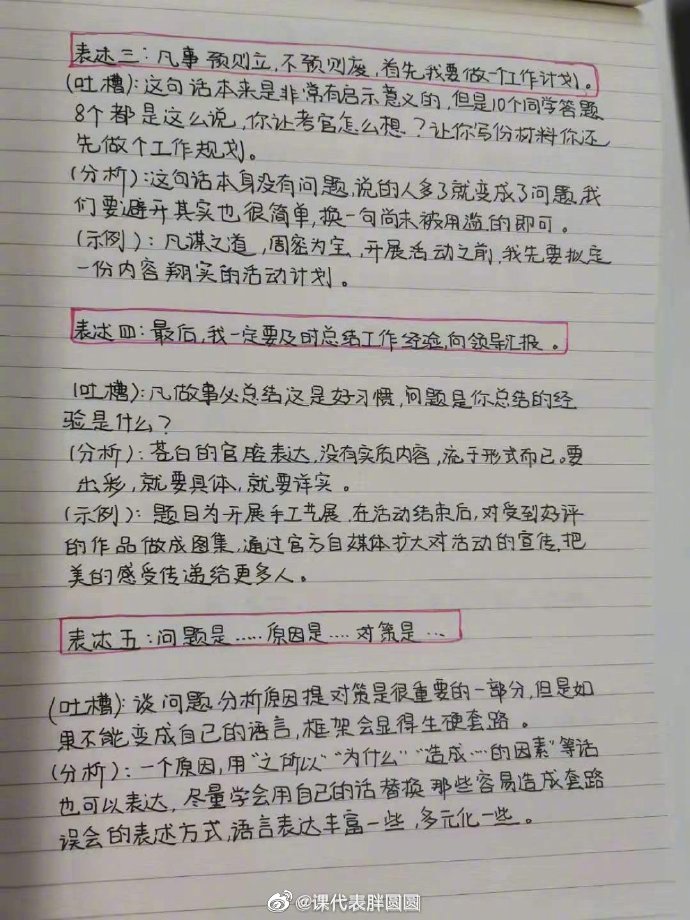 表述三：凡事预则立，不预则废，首先我要做一个工作计划。
(吐槽)：这句话本来是非常有启示意义的，但是10个同学答题
8个都是这么说，你让考官怎么想？让你写份材料你还
先做个工作规划。
(分析)：这句话本身没有问题，说的人多了就变成了问题，我
们要避开其实也很简单，换一句尚未被用滥的即可。
(示例)：凡谋之道，周密为宝，开展活动之前，我先要拟定
一份内容翔实的活动计划。
表述四：最后，我一定要及时总结工作经验，向领导汇报。
(吐槽)：凡做事必总结这是好习惯，问题是你总结的经
验是什么？
(分析)：苍白的官腔表达，没有实质内容，流于形式而已。要
出彩，就要具体，就要详实。
(示例)：题目为开展手工艺展，在活动结束后，对受到好评
的作品做成图集，通过官方自媒体扩大对活动的宣传，把
美的感受传递给更多人。
表述五：问题是……原因是……对策是…
(吐槽)：谈问题分析原因提对策是很重要的一部分，但是如
果不能变成自己的语言，框架会显得生硬套路。
(分析)：一个原因，用"之所以""为什么""造成…的因素"等话
也可以表达，尽量学会用自己的话替换那些容易造成套路
误会的表述方式，语言表达丰富一些，多元化一些。
@课代表胖圆圆